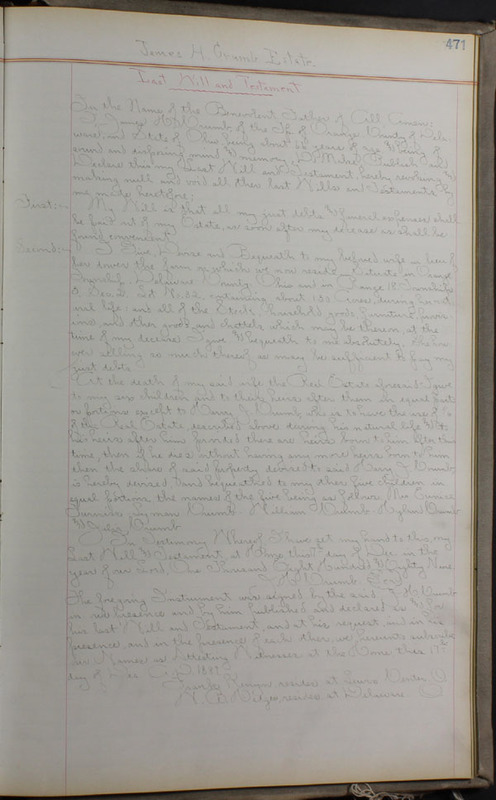 471
James H. Crumb Estate.
Last Will and Testament
In the Name of the Benevolent Father of All Amen:
I James H. Crumb of the Tp of Orange County of Dela-
ware, and State of Ohio being about 65 years of age & being of
sound and mind & memory, Do Make Publish and
Declare this my Last Will and Testament hereby revoking &
making null and void all other last Wills and Testaments by
me made heretofore;
First:- My Will is that all my just debts & funeral expenses shall
be paid out of my Estate, as soon after my decease as shall be
found convenient.
Second:- I Give, Devise and Bequeath to my beloved wife in lieu of
her dower the farm on which we now reside situate in Orange
Township Delaware County, Ohio and in Range 18 Township
3 Sec. 2. Lot No. 32, containing about 100 acres, during her nat-
ural life; and all of the Stock, household goods furniture provis-
ions and other goods and chattels which may be thereon, at the
time of my decease I give & bequeath to her absolutely. She how-
ever selling so much thereof as may be sufficient to pay my
just debts.
At the death of my said wife the Real Estate aforesaid I give
to my six children and to their heirs after them in equal parts
or portions except to J. Crumb, who is to have the use of
of the Real Estate described above during his natural life & to
his heirs after him provided there are heirs born to him after this
time, then if he dies without having any more heirs born to him
then the share of said property devised to said J. Crumb
is hereby devised and bequeathed to my other five children in
equal portions the names of the five being as follows, Mrs Eunice
Crumb William Crumb Crumb
& Crumb.
In Testimony Whereof I have set my hand to this, my
Last Will & Testament, at this day of Dec. in the
year of our Lord, One Thousand Eight Hundred & Eighty Nine.
J. H. Crumb
The foregoing Instrument was signed by the said J. H. Crumb
in our presence and by him published and declared as & for
his last Will and Testament and at his request, and in his
presence, and in the presence of each other, we hereunto subscribe
our Names as Attesting Witnesses at the this 17"
day of Dec. A.D. 1889.
resides at Lewis Center O.
resides at Delaware O